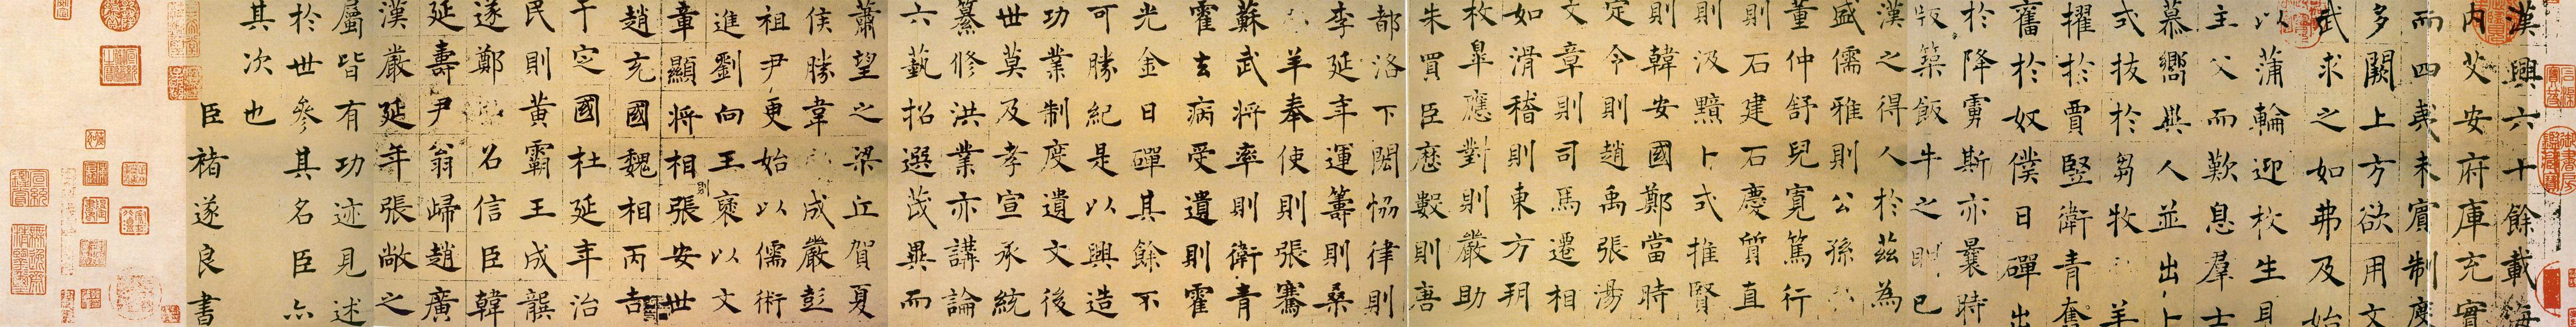 漢興六十餘載海
内艾安府庫充實
而四夷未賓制度
多闕上方欲用文
武求之如弗及始
以蒲輪迎枚生見
主父而歎息群士
慕嚮異人並出卜
式拔於芻牧羊
擢於賈豎衛青奮
奮於奴僕日磾出
於降虜斯亦曩時
版築飯牛之明已
漢之得人於茲為
盛儒雅則公孫
董仲舒兒寬篤行
則石建石慶質直
則汲黯卜式推賢
則韓安國鄭當時
定令則趙禹張湯
文章則司馬遷相
如滑稽則東方朔
枚皋應對則嚴助
朱買臣歷數則唐
都洛下閎協律則
李延年運籌則桑
羊奉使則張騫
蘇武將率則衛青
霍去病受遺則霍
光金日磾其餘不
可勝紀是以興造
功業制度遺文後
世莫及孝宣承統
纂修洪業亦講論
六藝招選茂異而
蕭望之梁丘賀夏
侯勝韋成嚴彭
祖尹更始以儒術
進劉向王褒以文
章顯將相則張安世
趙充國魏相丙吉
于定國杜延年治
民則黃霸王成龔
遂鄭召信臣韓
延壽尹翁歸趙廣
漢嚴延年張敞之
屬皆有功迹見述
於世參其名臣亦
其次也
臣褚遂良書